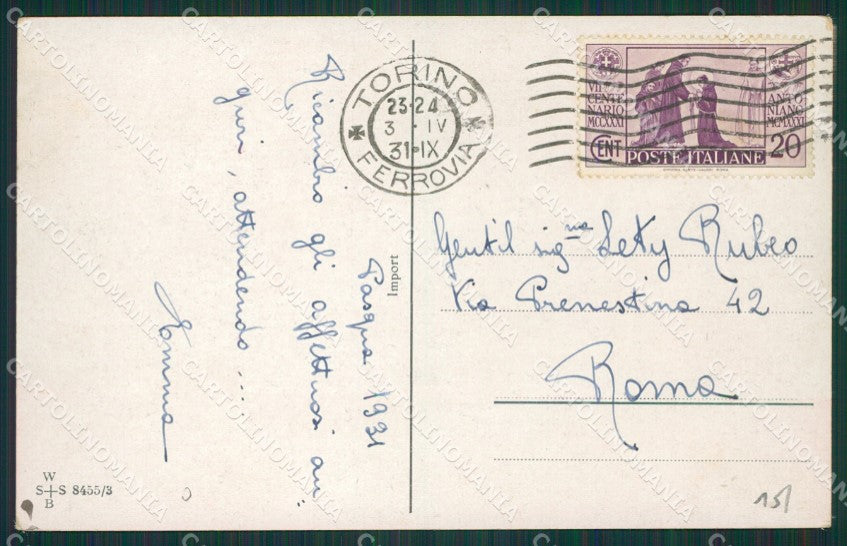 Pasqua 1931
Ricambio gli affettuosi au-
guri, attendendo....
Emma
Import
TORINO
23-24
3 • IV
31•IX
FERROVIA
VII
CENTE
NARIO
MCCXXXI
ANTO
NIANO
MCMXXXI
CENT
POSTE ITALIANE
20
Gentil sig.na Lety Rubeo
Via Prenestina 42
Roma
W
S+S 8455/3
B
15/
CARTOLINOMANIA